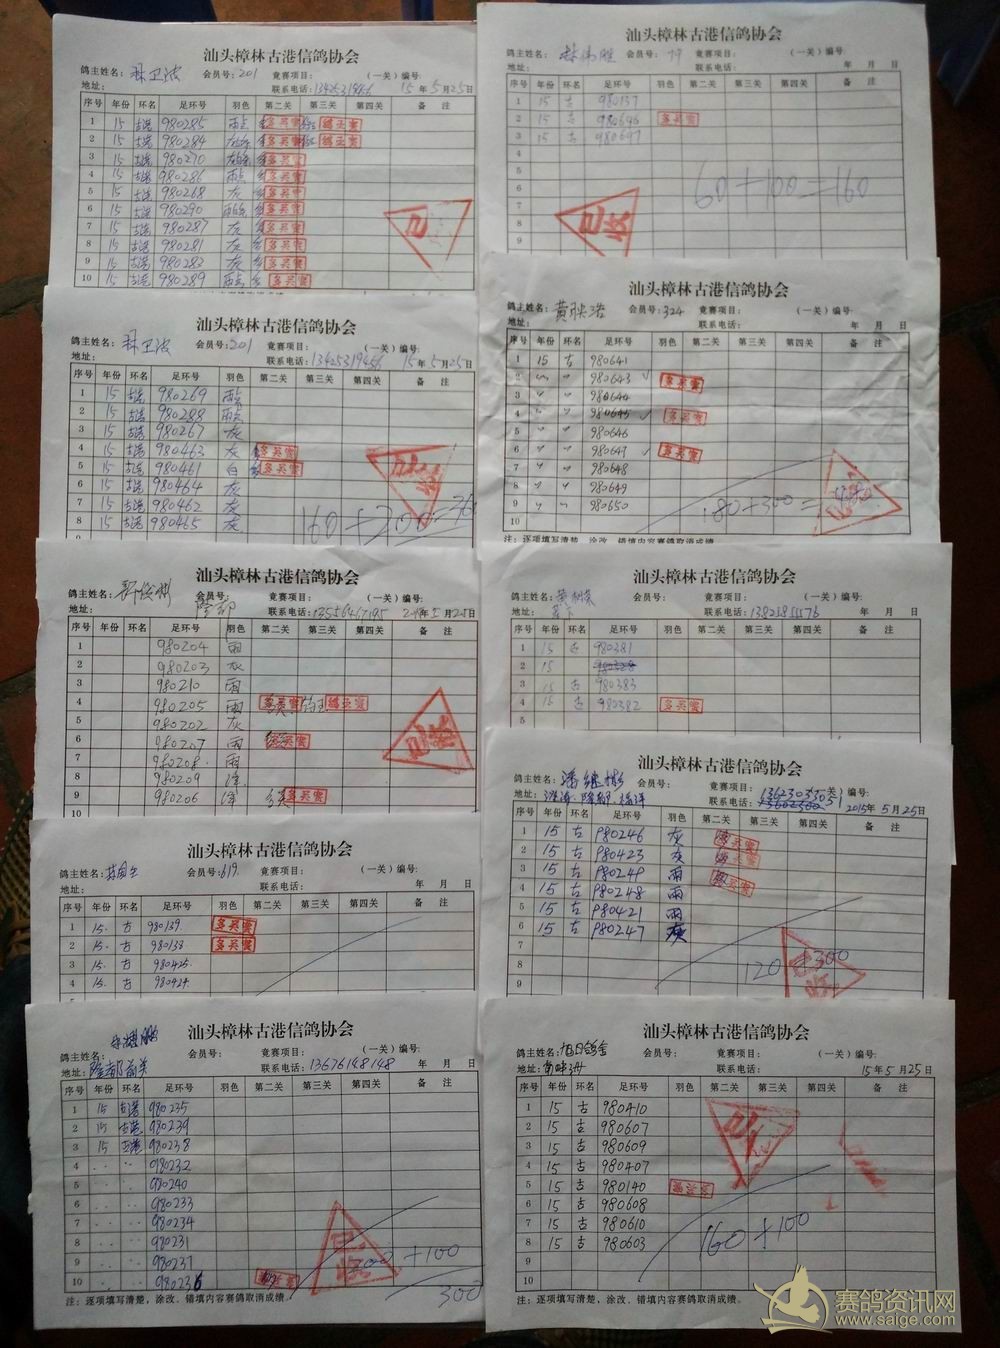 汕头樟林古港信鸽协会
鸽主姓名：林卫浓 会员号：201 竟赛项目： （一关）编号：
地址： 联系电话：13425319466 15年5月25日
序号 年份 环名 足环号 羽色 第二关 第三关 第四关 备 注
1 15 古港 980285 雨点 多关赛 鸽王赛
2 15 古港 980284 多关赛 鸽王赛
3 15 古港 980270 多关赛
4 15 古港 980286 雨点 多关赛
5 15 古港 980268 灰 多关赛
6 15 古港 980290 多关赛
7 15 古港 980287 灰 多关赛
8 15 古港 980281 灰 多关赛
9 15 古港 980283 灰 多关赛
10 15 古港 980289 雨点 多关赛
汕头樟林古港信鸽协会
鸽主姓名： 会员号： 竟赛项目： （一关）编号：
地址： 联系电话： 年 月 日
序号 年份 环名 足环号 羽色 第二关 第三关 第四关 备 注
1 15 古 980137
2 15 古 980696 多关赛
3 15 古 980697
4
5
6
7
8
9
60+100=160
已收
汕头樟林古港信鸽协会
鸽主姓名：林卫浓 会员号：201 竟赛项目： （一关）编号：
地址： 联系电话：13425319466 15年5月25日
序号 年份 环名 足环号 羽色 第二关 第三关 第四关 备 注
1 15 古港 980269 雨点
2 15 古港 980288 雨点
3 15 古港 980267 灰
4 15 古港 980463 灰 多关赛
5 15 古港 980461 白 多关赛
6 15 古港 980464 灰
7 15 古港 980462 灰
8 15 古港 980465 灰
160+200=360
汕头樟林古港信鸽协会
鸽主姓名： 会员号：324 竟赛项目： （一关）编号：
地址： 联系电话： 年 月 日
序号 年份 环名 足环号 羽色 第二关 第三关 第四关 备 注
1 15 古 980641
2 〃 〃 980643 √ 多关赛
3 〃 〃 980644
4 〃 〃 980645 √ 多关赛
5 〃 〃 980646
6 〃 〃 980647 √ 多关赛
7 〃 〃 980648
8 〃 〃 980649
9 〃 〃 980650
10
180+300=
注：逐项填写清楚，涂改、错填内容赛鸽取消成绩。
汕头樟林古港信鸽协会
鸽主姓名： 会员号： 竟赛项目： （一关）编号：
地址： 隆都 联系电话： 年5月25日
序号 年份 环名 足环号 羽色 第二关 第三关 第四关 备 注
1 980204 雨
2 980203 灰
3 980210 雨
4 980205 雨 多关赛 鸽王赛
5 980202 灰
6 980207 雨 多关赛
7 980208 雨
8 980209
9 980206 多关赛
汕头樟林古港信鸽协会
鸽主姓名： 会员号： 竟赛项目： （一关）编号：
地址： 联系电话： 年 月 日
序号 年份 环名 足环号 羽色 第二关 第三关 第四关 备 注
1 15 古 980381
2 15
3 15 古 980383
4 15 古 980382 多关赛
5
汕头樟林古港信鸽协会
鸽主姓名： 会员号： 竟赛项目： 关）编号：
地址： 联系电话： 2015年5月25日
序号 年份 环名 足环号 羽色 第二关 第三关 第四关 备 注
1 15 古 980246 灰 多关赛
2 15 古 980423 灰 多关赛
3 15 古 多关赛
4 15 古 980248 雨
5 15 古 980421 雨
6 15 古 980247 灰
7
8
9
120+300
汕头樟林古港信鸽协会
鸽主姓名： 会员号：619 竟赛项目： （一关）编号：
地址： 联系电话： 年 月 日
序号 年份 环名 足环号 羽色 第二关 第三关 第四关 备 注
1 15. 古 980139 多关赛
2 15. 古 980138 多关赛
3 15. 古 980425
4 15. 古 980424
汕头樟林古港信鸽协会
鸽主姓名： 会员号： 竟赛项目： （一关）编号：
地址：隆都前关 联系电话：13676148148 年 月 日
序号 年份 环名 足环号 羽色 第二关 第三关 第四关 备 注
1 15 古港 980235
2 15 古港 980239
3 15 古港 980238
4 980232
5 980240
6 980233
7 980234
8 980231
9 980237
10 980236
200+100
300
注：逐项填写清楚，涂改、错填内容赛鸽取消成绩。
汕头樟林古港信鸽协会
鸽主姓名：旭日鸽舍 会员号： 竟赛项目： （一关）编号：
地址： 联系电话： 15年5月25日
序号 年份 环名 足环号 羽色 第二关 第三关 第四关 备 注
1 15 古 980410
2 15 古 980607
3 15 古 980609
4 15 古 980407
5 15 古 980140 多关赛
6 15 古 980608
7 15 古 980610
8 15 古 980603
9
10
160+100
注：逐项填写清楚，涂改、错填内容赛鸽取消成绩。
赛鸽资讯网
www.saige.com